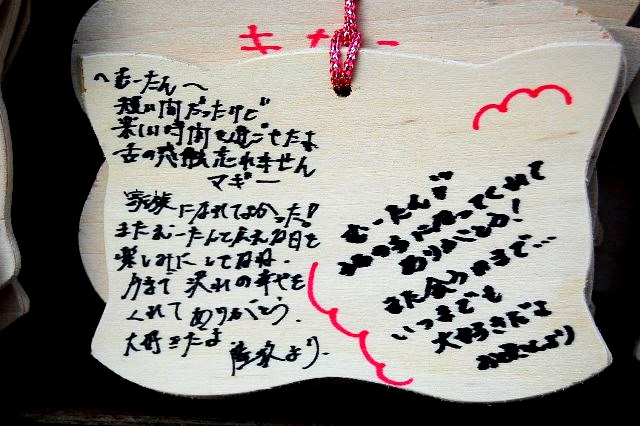 ～むーたん～
短い間だったけど
楽しい時間を過ごせたよ
舌の感触忘れません
マギー
家族になれてよかった!
またむーたんと会える日を
楽しみにしてるね。
今まで 沢山の幸せを
くれて ありがとう。
大好きだよ
むーたん!!
になってくれて
ありがとう!
また会う日まで…
いつまでも
大好きだよ
より